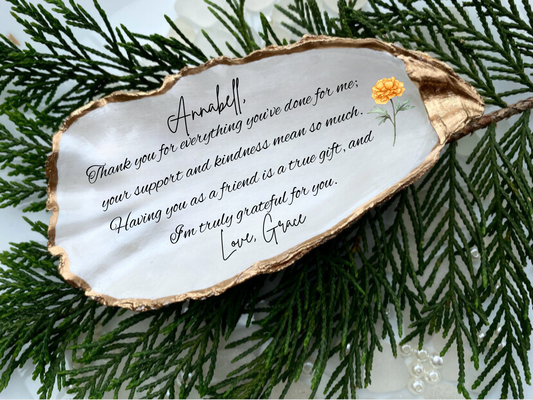 Annabell,
Thank you for everything you've done for me;
your support and kindness mean so much.
Having you as a friend is a true gift, and
I'm truly grateful for you.
Love, Grace